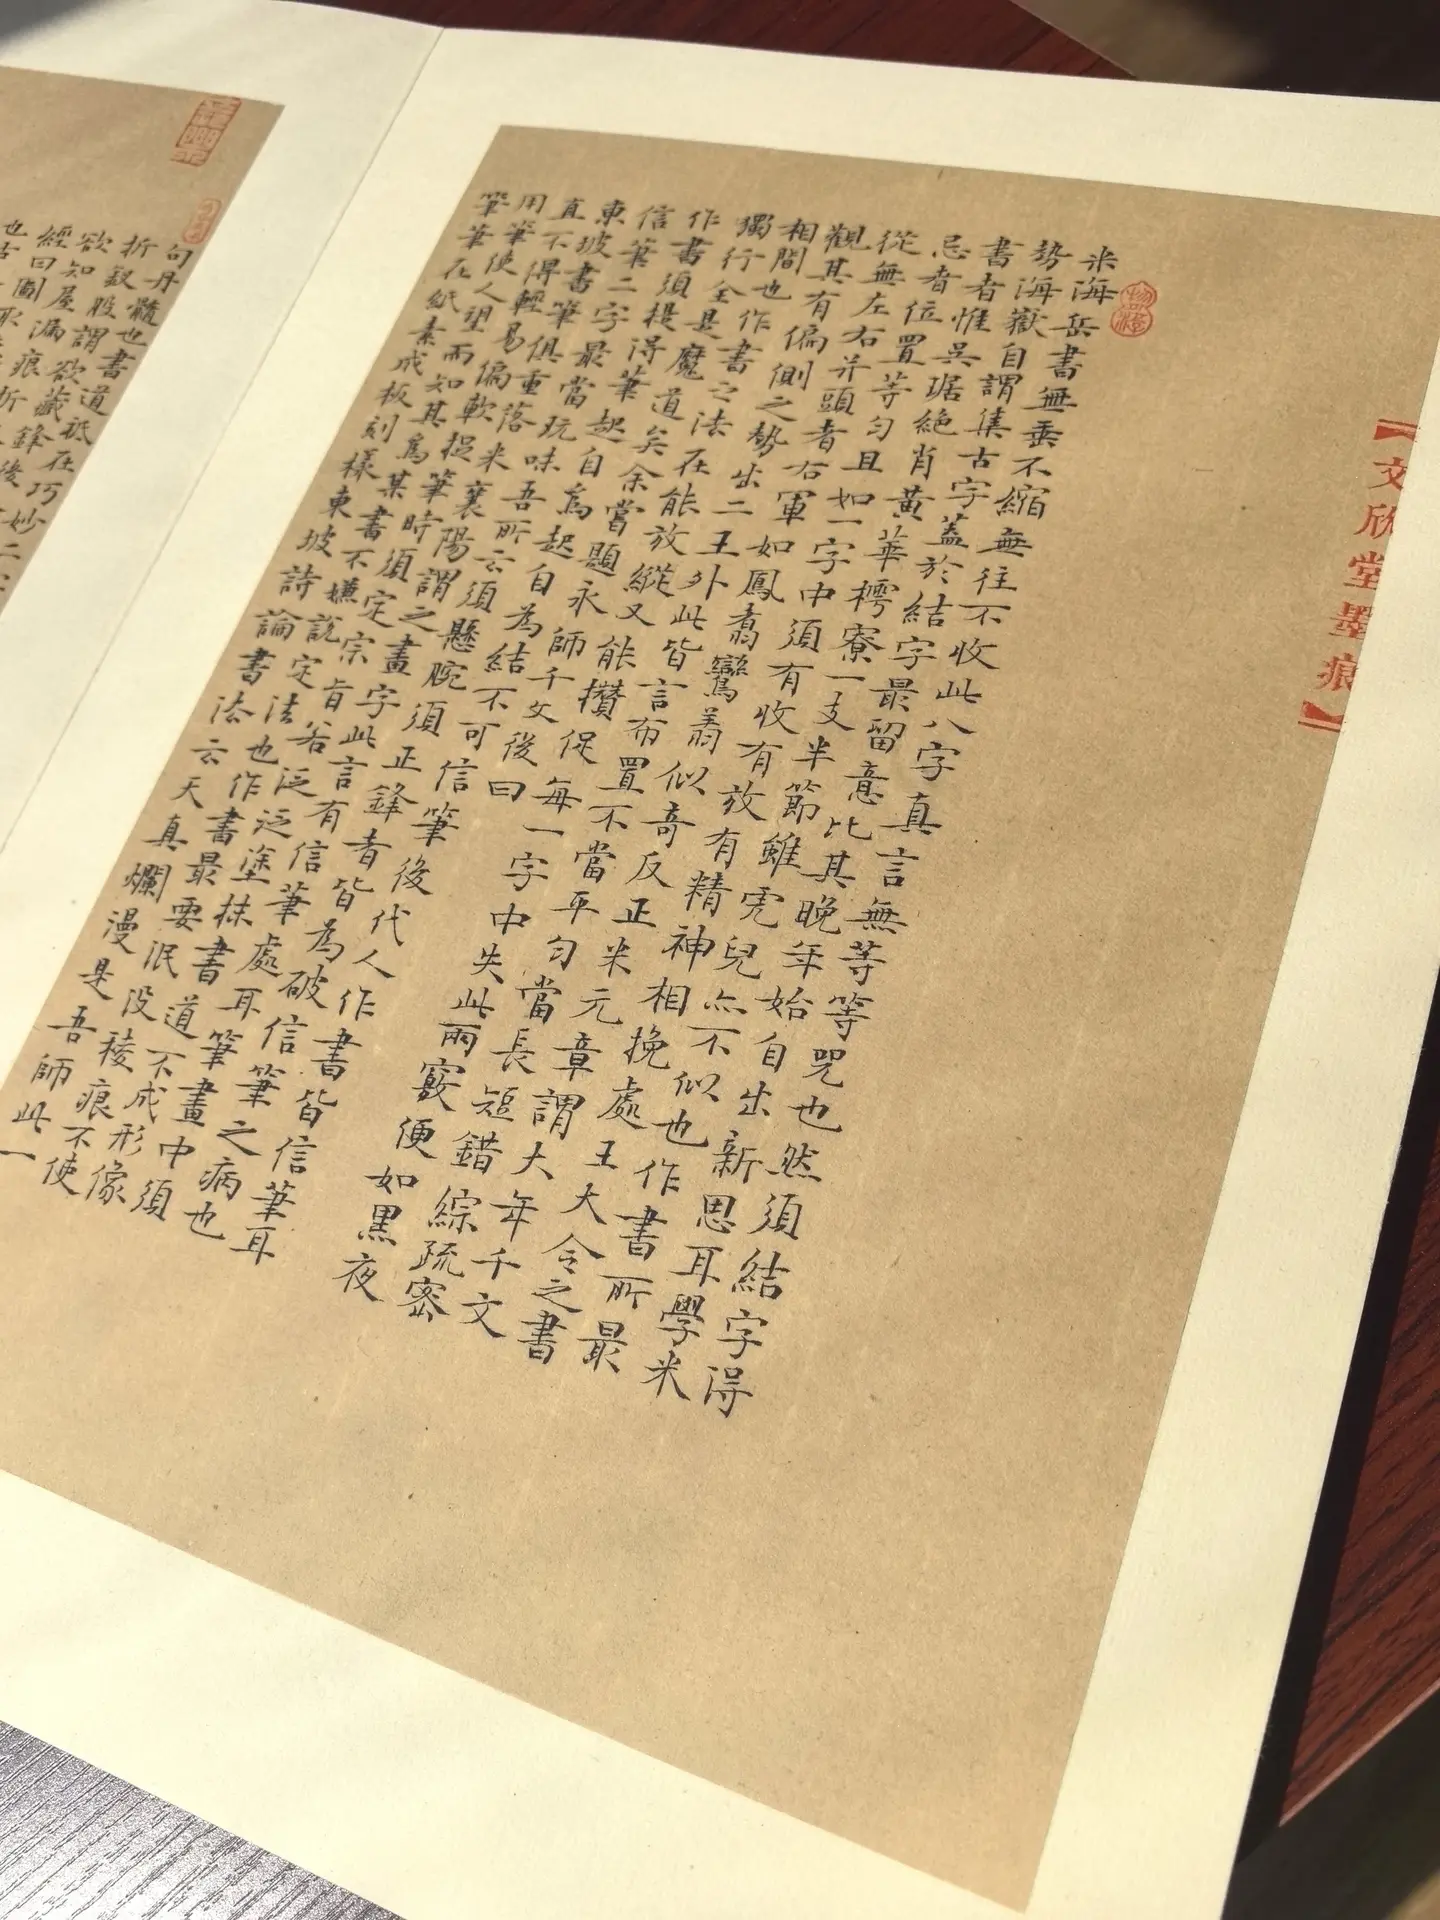 【文欣堂墨痕】
米海岳書無垂不縮無往不收此八字真言無等等咒也然須結字得
勢海嶽自謂集古字蓋於結字最留意比其晚年始自出新思耳學米
書者惟吳琚絕肖黃華樗寮一支半節雖虎兒亦不似也作書所最
忌者位置等勻且如一字中須有收有放有精神相挽處王大令之書
從無左右并頭者右軍如鳳翥鸞翥似奇反正米元章謂大年千文
觀其有偏側之勢出二王外此皆言布置不當平勻當長短錯綜疏密
相間也作書之法在能放縱又能攢促每一字中失此兩竅便如黑夜
獨行全是魔道矣余嘗題永師千文後曰
作書須提得筆起自為起自為結不可信筆後代人作書皆信筆耳
信筆二字最當玩味吾所云須懸腕須正鋒者皆為破信筆之病也
東坡書筆俱重落米襄陽謂之畫字此言有信筆處耳筆畫中須
直不得輕易偏軟捉筆時須定宗旨若泛泛塗抹書道不成形像
用筆使人望而知其為某書不嫌說定法也作書最要泯沒稜痕不使
筆筆在紙素成板刻樣東坡詩論書法云天真爛漫是吾師此一
句丹髓也書道祇在巧妙二
折釵股謂欲藏鋒後
欲知屋漏痕折
經曰圓